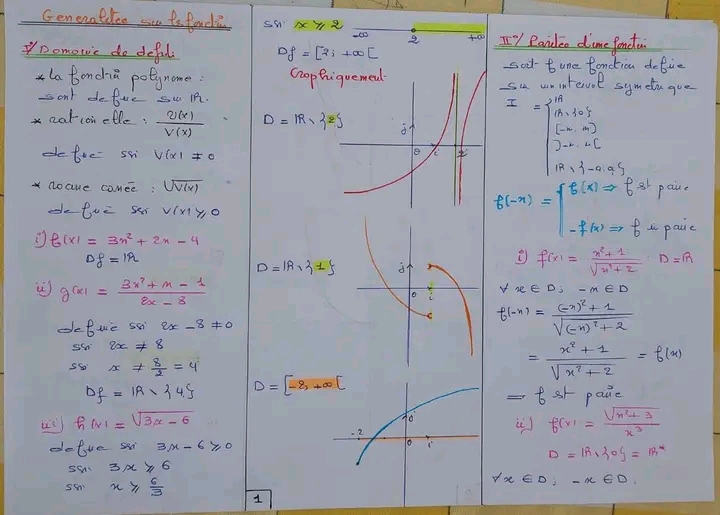 Generalitée sur la fonction
I°/ Domaine de defui
* la fonction polynome :
sont defuie sur IR.
* rationelle : U(x)/V(x)
defuie ssi V(x) ≠ 0
* racine carrée : √V(x)
defuie ssi V(x) ⩾ 0
i) f(x) = 3x² + 2x - 4
Df = IR
ii) g(x) = (3x² + x - 1)/(2x - 8)
defuie ssi 2x - 8 ≠ 0
ssi 2x ≠ 8
ssi x ≠ 8/2 = 4
Df = IR \ {4}
iii) h(x) = √3x - 6
defuie ssi 3x - 6 ⩾ 0
ssi 3x ⩾ 6
ssi x ⩾ 6/3
ssi x ⩾ 2
-∞ 2 +∞
Df = [2; +∞[
Graphiquement
D = IR \ {2}
j
0 i 2
D = IR \ {1}
j
0 i
D = [-2, +∞[
-2 0 i
1
II°/ Paritée d'une fonction
soit f une fonction defuie
sur un interval symetrique
I = { IR
IR \ {0}
[-a, a]
]-a, a[
IR \ {-a, a}
f(-x) = { f(x) ⇒ f est paire
-f(x) ⇒ f im paire
i) f(x) = (x² + 1)/√x² + 2 : D = IR
∀ x ∈ D ; -x ∈ D
f(-x) = ((-x)² + 1)/√(-x)² + 2
= (x² + 1)/√x² + 2 = f(x)
⇒ f est paire
ii) f(x) = √x² + 3/x³
D = IR \ {0} = IR*
∀ x ∈ D ; -x ∈ D.